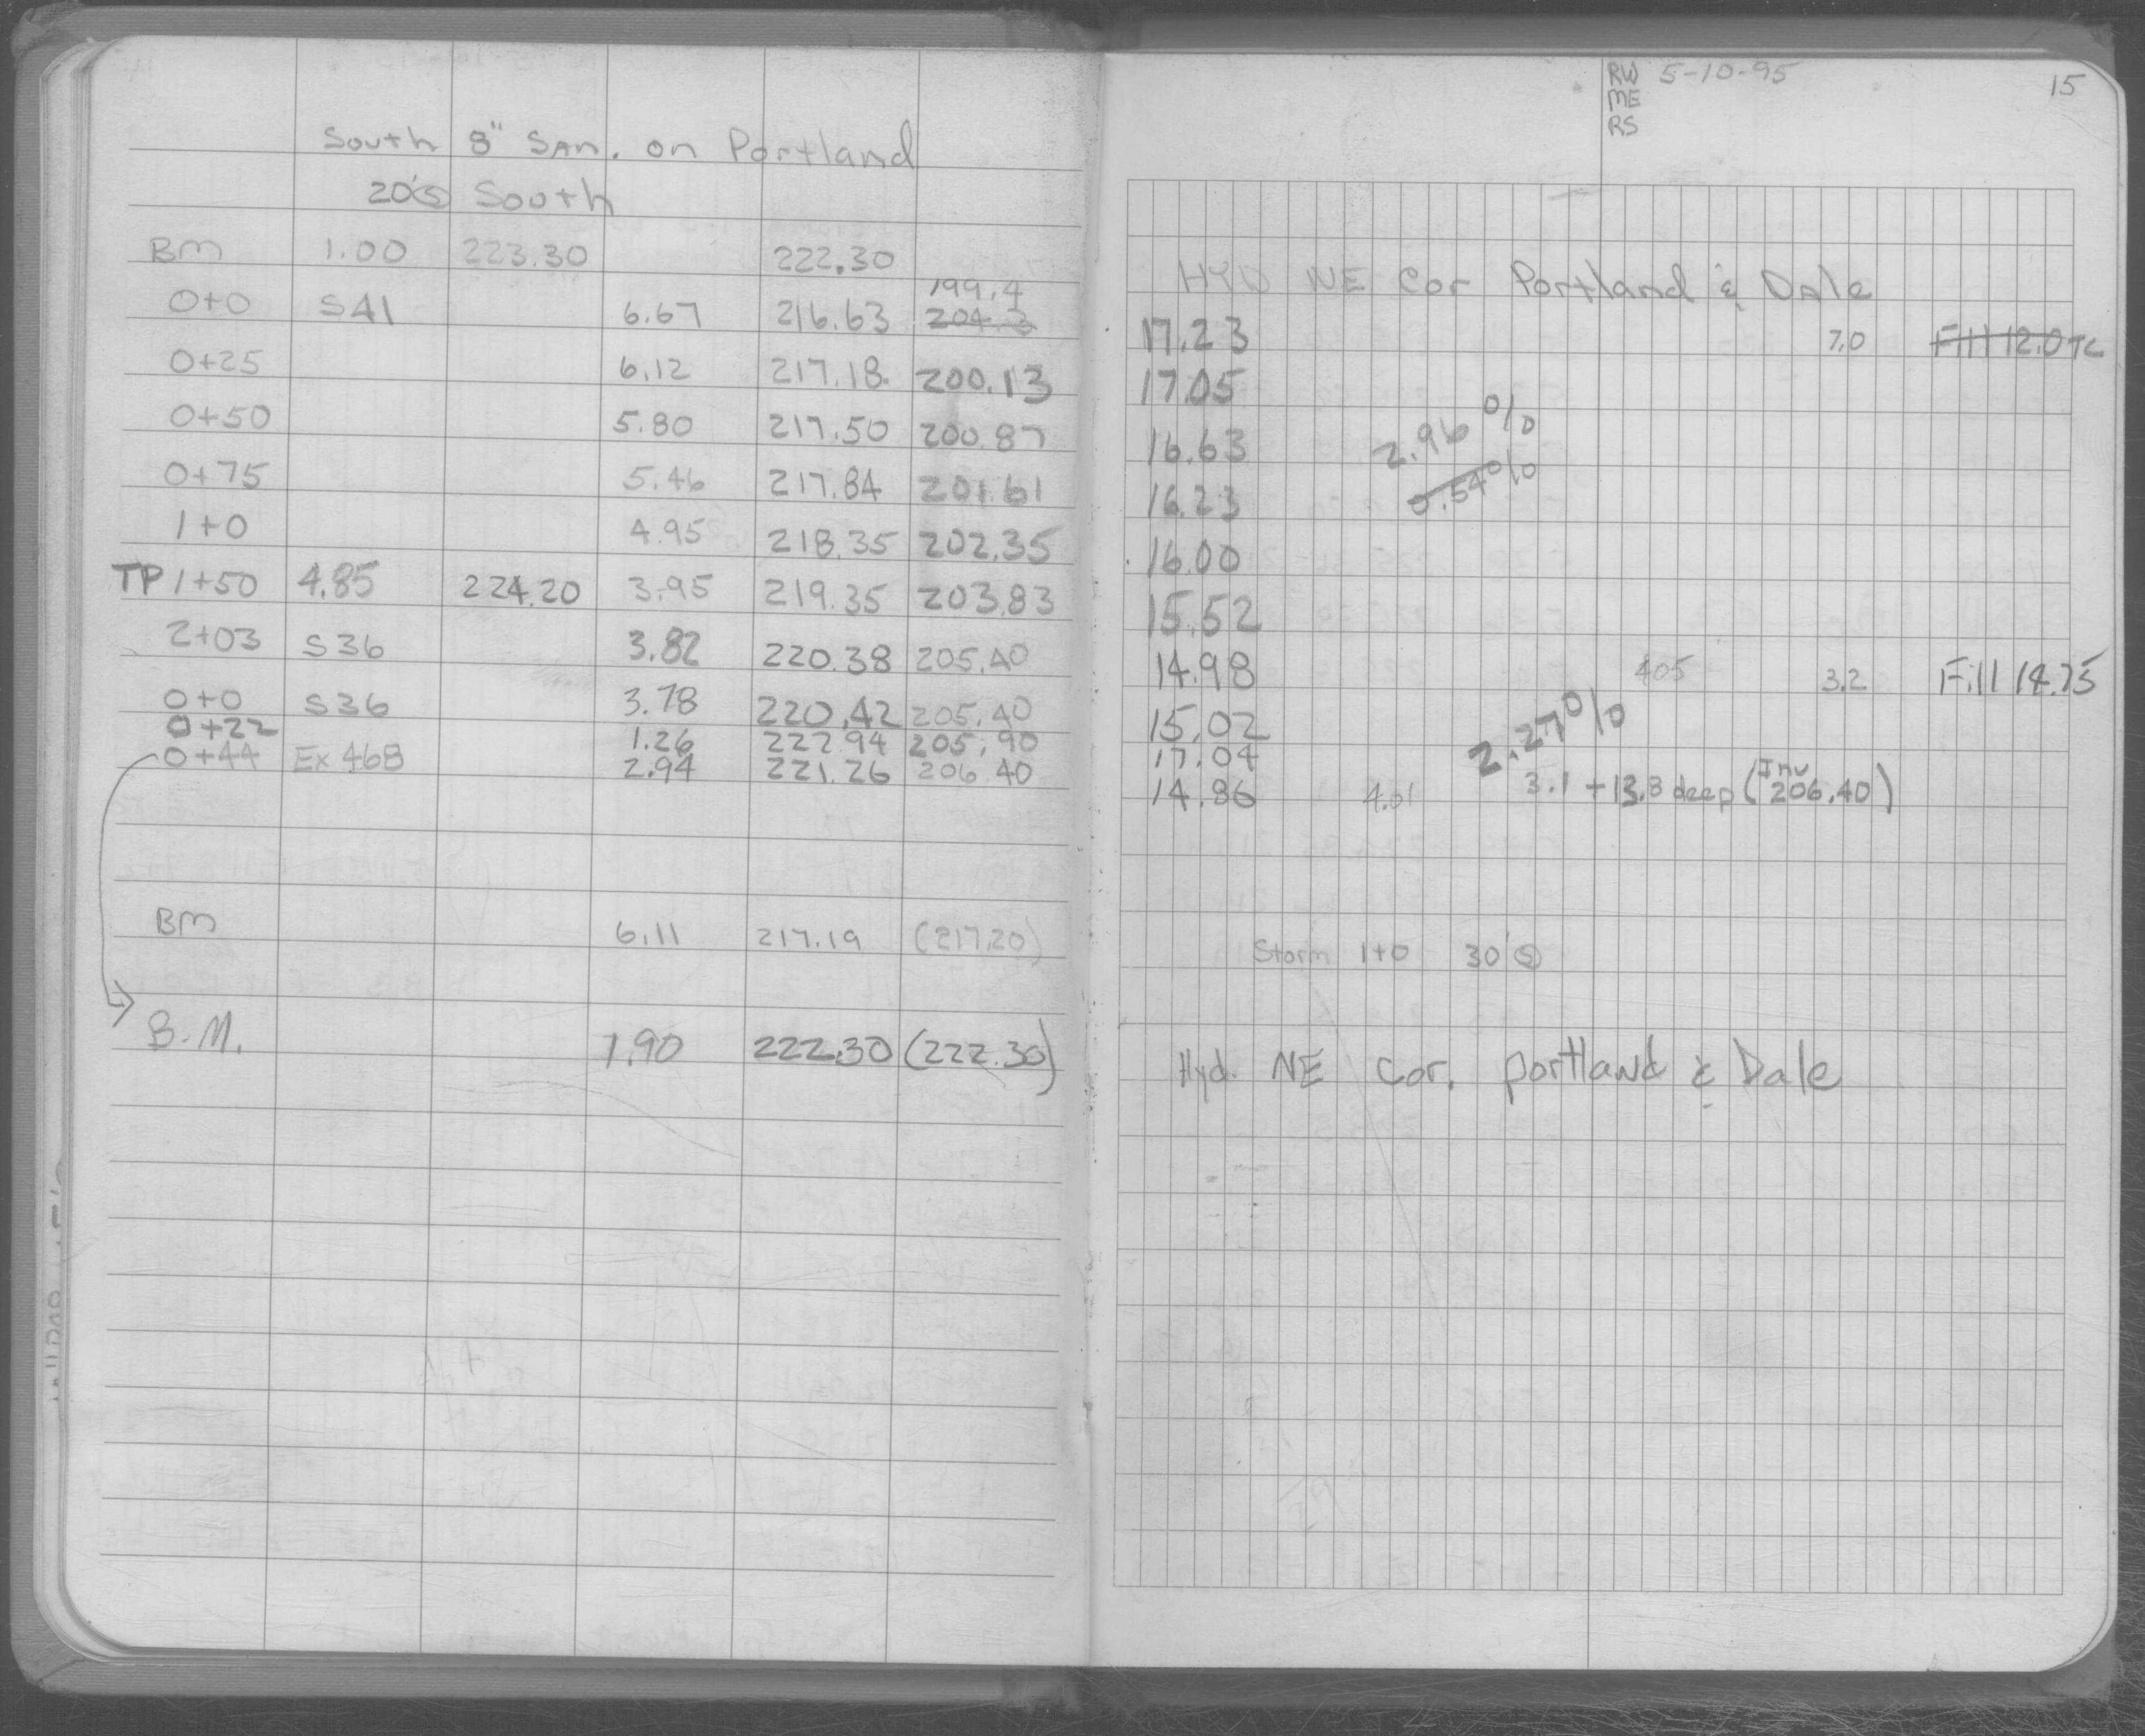 South 8" SAN. on Portland
20'Ⓢ South
BM 1.00 223.30 222.30
199.4
0+0 S41 6.67 216.63 204.3
0+25 6.12 217.18 200.13
0+50 5.80 217.50 200.87
0+75 5.46 217.84 201.61
1+0 4.95 218.35 202.35
TP 1+50 4.85 224.20 3.95 219.35 203.83
2+03 S36 3.82 220.38 205.40
0+0 S36 3.78 220.42 205.40
0+22 1.26 222.94 205.90
0+44 Ex 468 2.94 221.26 206.40
BM 6.11 217.19 (217.20)
B.M. 1.90 222.30 (222.30)
RW 5-10-95 15
ME
RS
HYD NE Cor Portland & Dale
17.23 7.0 Fill 12.0 TC
17.05
16.63 2.96%
16.23 0.54%
16.00
15.52
14.98 405 3.2 Fill 14.75
15.02 2.27%
17.04
14.86 4.01 3.1 + 13.8 deep (Inv 206.40)
Storm 1+0 30'Ⓢ
Hyd. NE Cor. portland & Dale